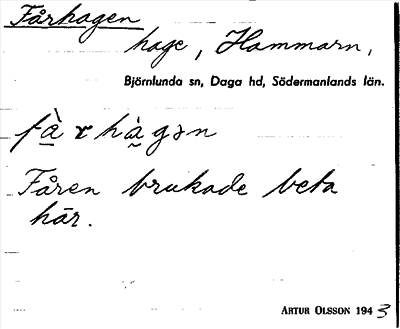 Fårhagen
hage, Hammarn,
Björnlunda sn, Daga hd, Södermanlands län.
fà̱rhà̰gən
Fåren brukade beta
här.
ARTUR OLSSON 1943